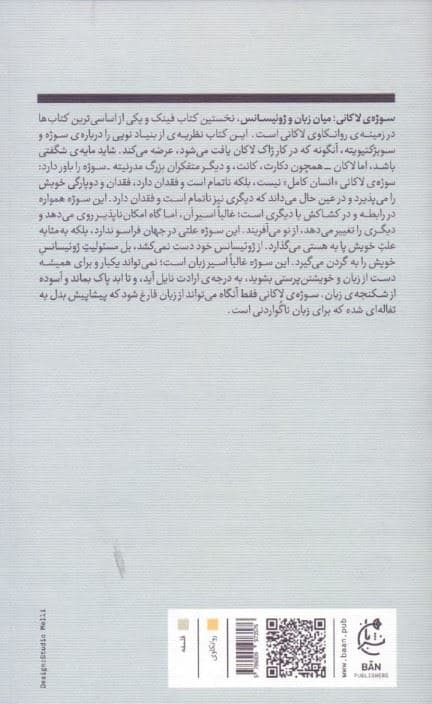 سوژه‌ی لاکانی؛ میان زبان و ژوئیسانس، نخستین کتاب فینک و یکی از اساسی‌ترین کتاب‌ها
در زمینه‌ی روانکاوی لاکانی است. این کتاب نظریه‌ی از بنیاد نویی را درباره‌ی سوژه و
سوبژکتیویته، آنگونه که در کار ژاک لاکان یافت می‌شود، عرضه می‌کند. شاید مایه‌ی شگفتی
باشد، اما لاکان ـ همچون دکارت، کانت، و دیگر متفکران بزرگ مدرنیته ـ سوژه را باور دارد؛
سوژه‌ی لاکانی «انسان کامل» نیست، بلکه ناتمام است و فقدان دارد، فقدان و دوپارگی خویش
را می‌پذیرد و در عین حال می‌داند که دیگری نیز ناتمام است و فقدان دارد. این سوژه همواره
در رابطه و در کشاکش با دیگری است؛ غالباً اسیر آن، اما گاه امکان ناپذیر روی می‌دهد و
دیگری را تغییر می‌دهد، از نو می‌آفریند. این سوژه علتی در جهان فراسو ندارد، بلکه به‌مثابه
علتِ خویش پا به هستی می‌گذارد. از ژوئیسانس خود دست نمی‌کشد، بل مسئولیتِ ژوئیسانسِ
خویش را به گردن می‌گیرد. این سوژه غالباً اسیر زبان است؛ نمی‌تواند یکبار و برای همیشه
دست از زبان و خویشتن‌پرستی بشوید، به درجه‌ی ارادت نایل آید، و تا ابد پاک بماند و آسوده
از شکنجه‌ی زبان. سوژه‌ی لاکانی فقط آنگاه می‌تواند از زبان فارغ شود که پیشاپیش بدل به
تفاله‌ای شده که برای زبان ناگواردنی است.
Design:Studio Melli
فلسفه
روانکاوی
www.baan.pub
نشر بان
BĀN
PUBLISHERS